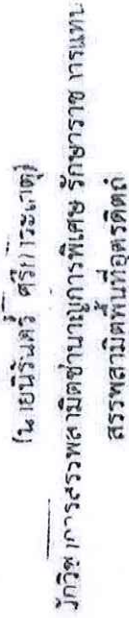 (นายนิรันดร์ ศรีภาระเกตุ)
นักวิชาการสรรพสามิตชำนาญการพิเศษ รักษาราชการแทน
สรรพสามิตพื้นที่อุตรดิตถ์